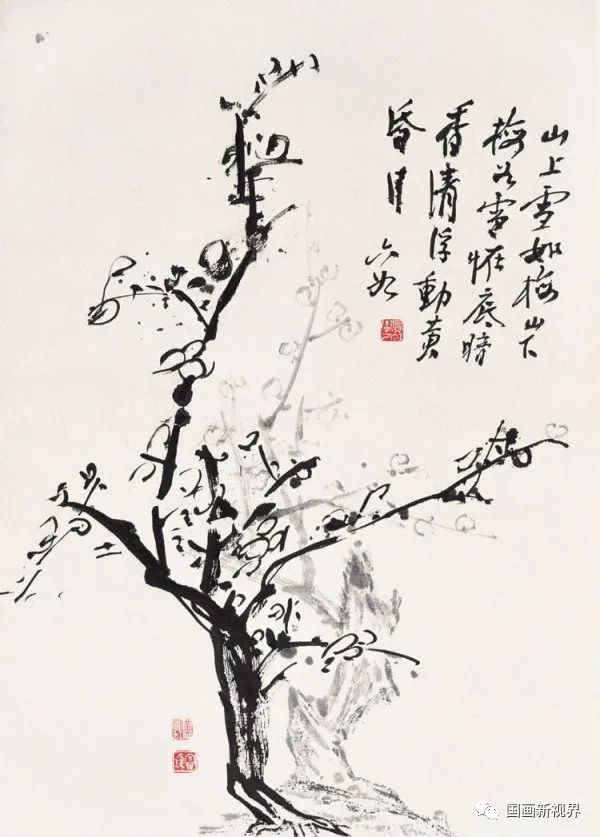 山上雪如梅山下
梅雪恠底暗
香清浮動黃
昏月
六如
国画新视界